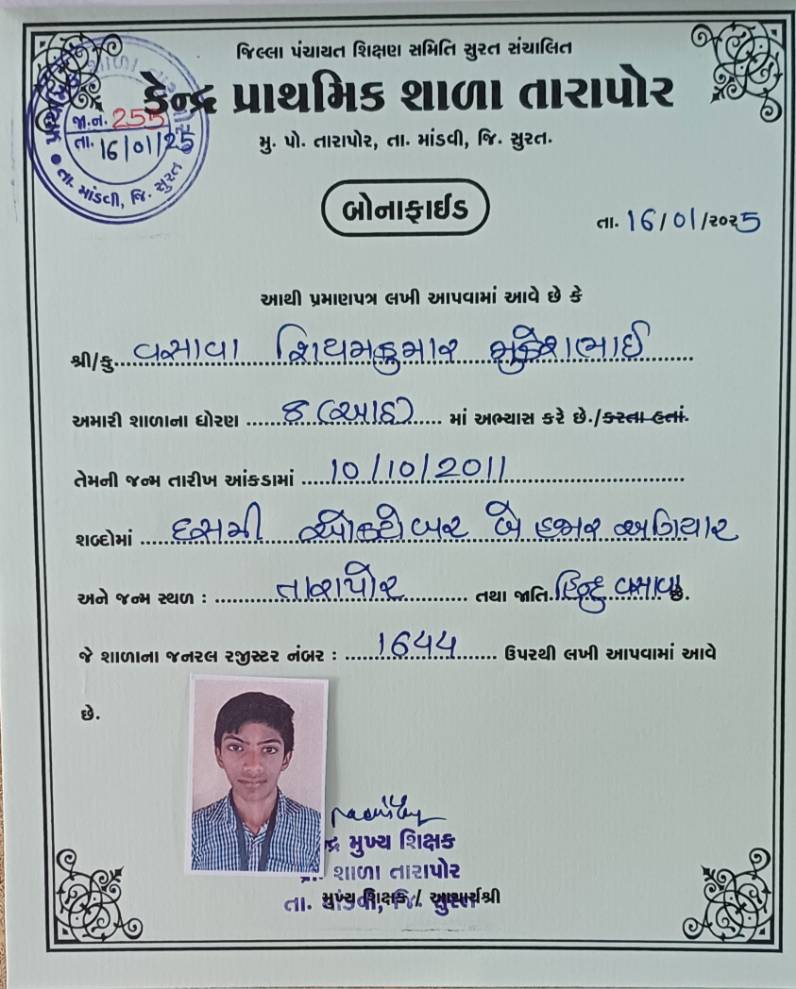 જિલ્લા પંચાયત શિક્ષણ સમિતિ સુરત સંચાલિત
કેન્દ્ર પ્રાથમિક શાળા તારાપોર
મુ. પો. તારાપોર, તા. માંડવી, જિ. સુરત.
જા.નં. 255
તા. 16/01/25
તા. માંડવી, જિ. સુરત
બોનાફાઈડ
તા. 16/01/૨૦૨5
આથી પ્રમાણપત્ર લખી આપવામાં આવે છે કે
શ્રી/કુ. વસાવા શિયમકુમાર મુકેશભાઈ
અમારી શાળાના ધોરણ 8 (આઠ) માં અભ્યાસ કરે છે./કરતા હતાં.
તેમની જન્મ તારીખ આંકડામાં 10/10/2011
શબ્દોમાં દસમી ઓક્ટોબર બે હજાર અગિયાર
અને જન્મ સ્થળ : તારાપોર તથા જાતિ. હિન્દુ વસાવા છે.
જે શાળાના જનરલ રજીસ્ટર નંબર : 1644 ઉપરથી લખી આપવામાં આવે
છે.
મુખ્ય શિક્ષક
શાળા તારાપોર
તા. માંડવી, જિ. સુરત
મુખ્ય શિક્ષક / આચાર્યશ્રી